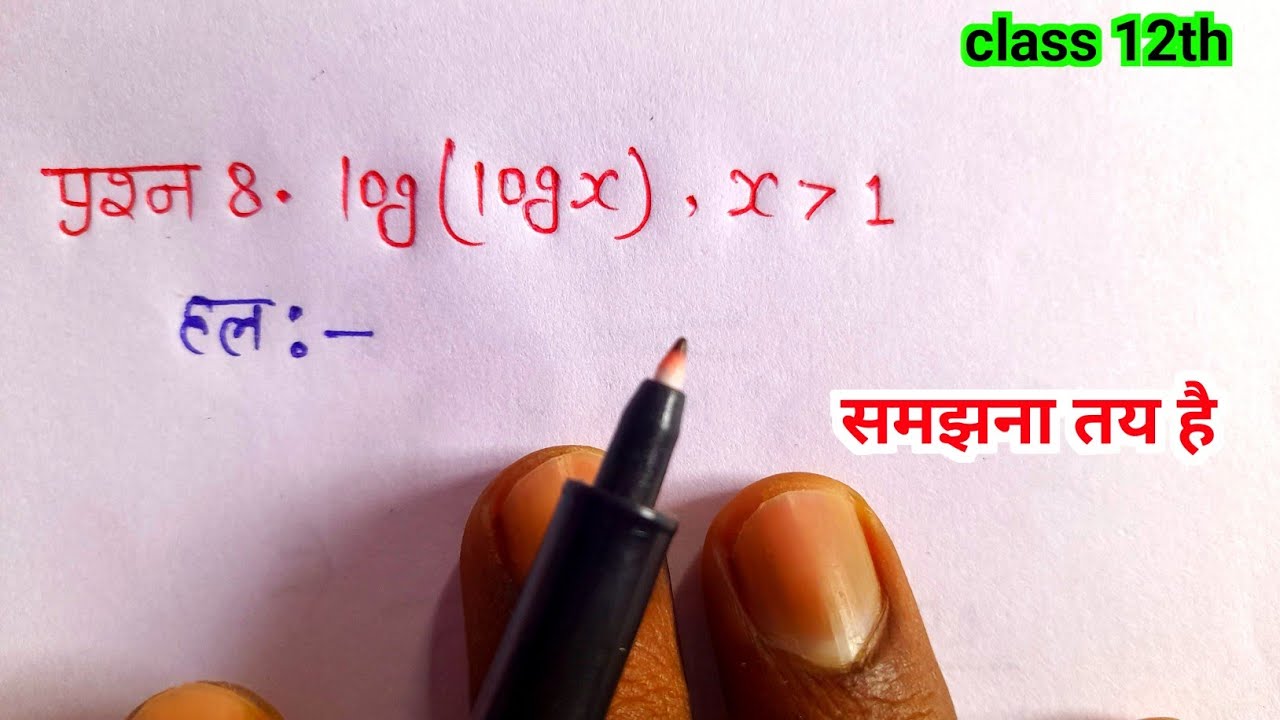 class 12th
प्रश्न 8. log(logx), x > 1
हल :-
समझना तय है